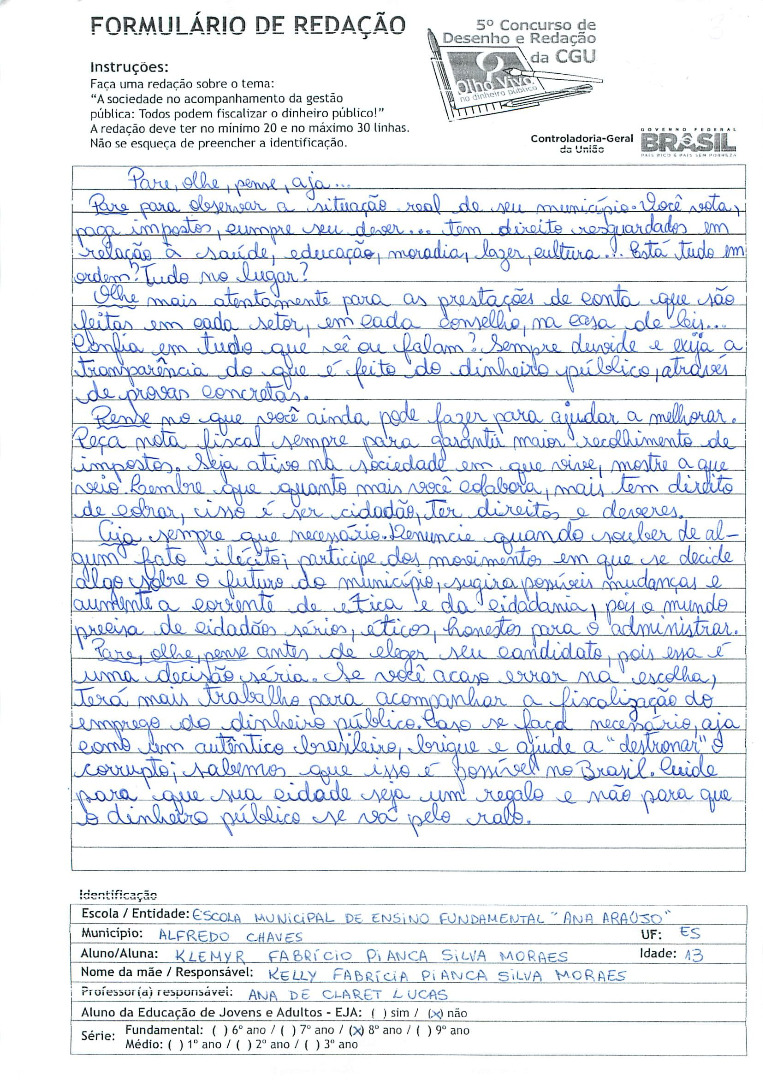 FORMULÁRIO DE REDAÇÃO
5º Concurso de
Desenho e Redação
da CGU
Olho Vivo
no dinheiro público
Instruções:
Faça uma redação sobre o tema:
"A sociedade no acompanhamento da gestão
pública: Todos podem fiscalizar o dinheiro público!"
A redação deve ter no mínimo 20 e no máximo 30 linhas.
Não se esqueça de preencher a identificação.
Controladoria-Geral
da União
GOVERNO FEDERAL
BRASIL
PAÍS RICO É PAÍS SEM POBREZA
Pare, olhe, pense, aja...
Pare para observar a situação real de seu município. Você vota,
paga impostos, cumpre seu dever... tem direito resguardados em
relação à saúde, educação, moradia, lazer, cultura... Está tudo em
ordem? Tudo no lugar?
Olhe mais atentamente para as prestações de conta que são
feitas em cada setor, em cada conselho, na casa de leis...
Confia em tudo que vê ou falam? Sempre duvide e exija a
transparência do que é feito do dinheiro público, através
de provas concretas.
Pense no que você ainda pode fazer para ajudar a melhorar.
Peça nota fiscal sempre para garantir maior recolhimento de
impostos. Seja ativo na sociedade em que vive, mostre a que
veio. Lembre que quanto mais você colabora, mais tem direito
de cobrar, e isso é ser cidadão, ter direitos e deveres.
Aja sempre que necessário. Denuncie quando souber de al-
gum fato ilícito; participe dos movimentos em que se decide
algo sobre o futuro do município, sugira possíveis mudanças e
aumente a corrente de ética e da cidadania, pois o mundo
precisa de cidadãos sérios, éticos, honestos para o administrar.
Pare, olhe, pense antes de eleger seu candidato, pois essa é
uma decisão séria. Se você acaso errar na escolha,
terá mais trabalho para acompanhar a fiscalização do
emprego do dinheiro público. Caso se faça necessário, aja
como um autêntico brasileiro, brigue e ajude a "destronar" o
corrupto; sabemos que isso é possível no Brasil. Cuide
para que sua cidade seja um regalo e não para que
o dinheiro público se vá pelo ralo.
Identificação
Escola / Entidade: ESCOLA MUNICIPAL DE ENSINO FUNDAMENTAL "ANA ARAÚJO"
Município: ALFREDO CHAVES UF: ES
Aluno/Aluna: KLEMYR FABRÍCIO PIANCA SILVA MORAES Idade: 13
Nome da mãe / Responsável: KELLY FABRÍCIA PIANCA SILVA MORAES
Professor(a) responsável: ANA DE CLARET LUCAS
Aluno da Educação de Jovens e Adultos - EJA: ( ) sim / (x) não
Série: Fundamental: ( ) 6º ano / ( ) 7º ano / (x) 8º ano / ( ) 9º ano
Médio: ( ) 1º ano / ( ) 2º ano / ( ) 3º ano